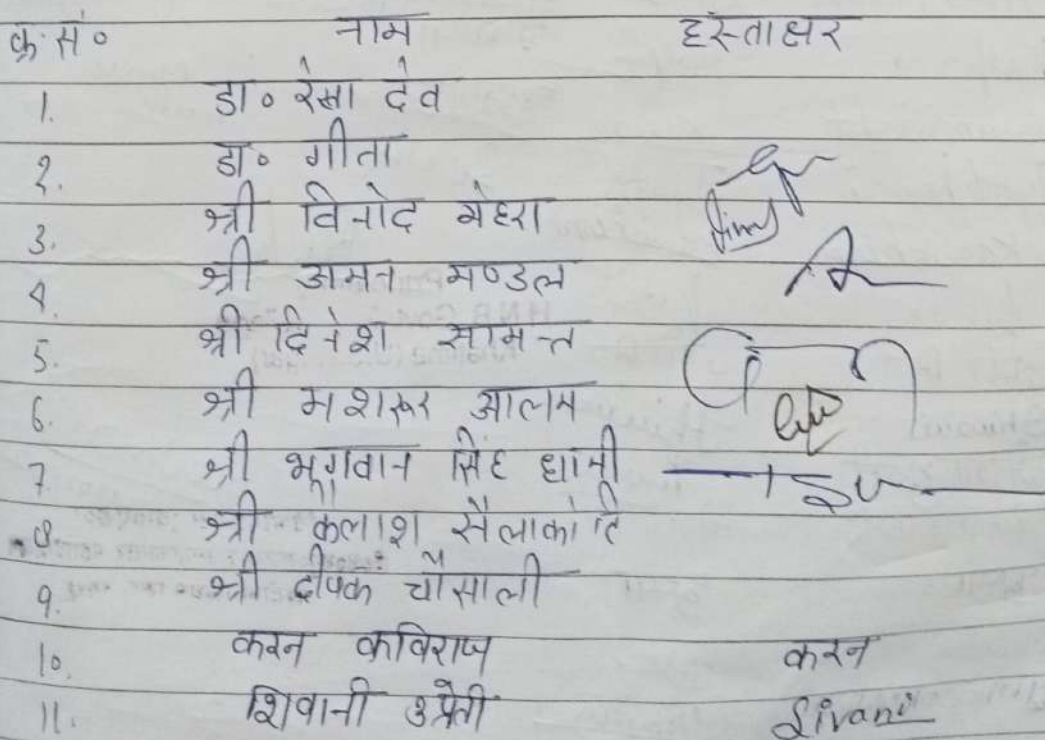 क्र.सं० नाम हस्ताक्षर
1. डा० रेखा देव
2. डा० गीता
3. श्री विनोद मेहरा
4. श्री अमन मण्डल
5. श्री दिनेश सामन्त
6. श्री मशरूर आलम
7. श्री भगवान सिंह धामी
8. श्री कैलाश सैलाकोटि
9. श्री दीपक चौसाली
10. करन कविराज करन
11. शिवानी उप्रेती Sivani